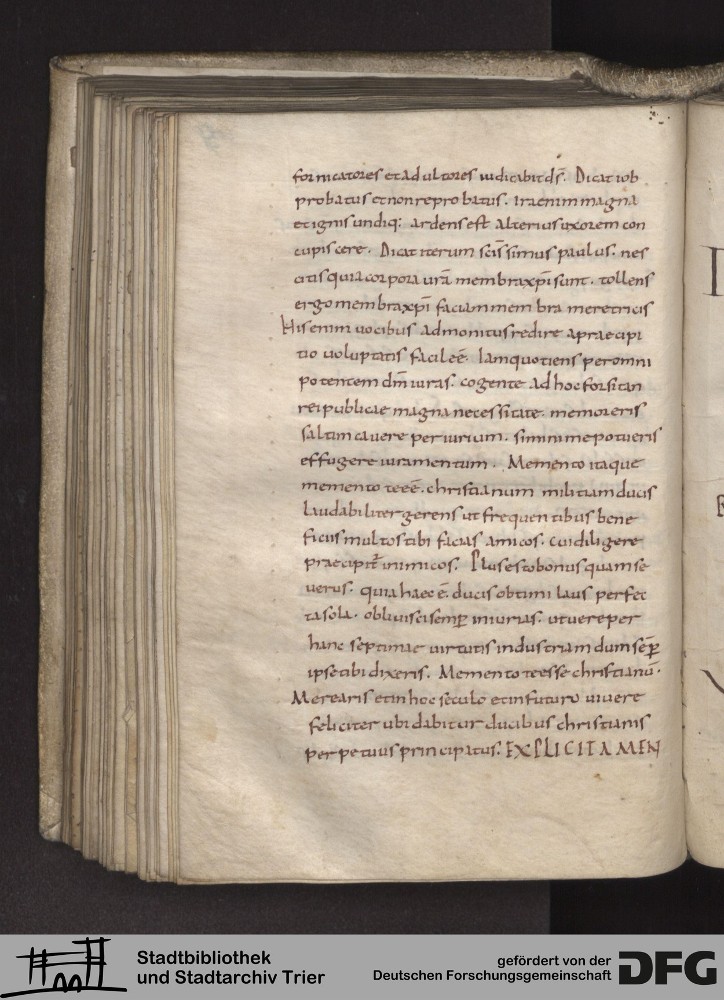 fornicatores et adultores iudicabit dš. Dicat iob
probatus et non reprobatus. Ira enim magna
et ignis undiq: ardens est alterius uxorem con
cupiscere. Dicat iterum scissimus paulus. nes
citis quia corpora urã membra xp̄i sunt. tollens
ergo membra xp̄i faciam membra meretricis
His enim uocibus admonitus redire a praecipi
tio uoluptatis facile ē. Iam quotiens per omni
potentem dm̄ iuras. cogente ad hoc forsitan
rei publicae magna necessitate. memor eris
saltim cauere periurium. si minime potueris
effugere iuramentum. Memento itaque
memento te eē. christianum militiam ducis
laudabiliter gerens ut frequentibus bene
ficiis multos tibi facias amicos. cui diligere
praecipit̄ inimicos. Plus esto bonus quam se
uerus. quia haec ē ducis obtimi laus perfec
ta sola. obliuisci semp̄ iniurias. ut uere per
hanc septimae uirtutis industriam dum sēp̄
ipse tibi dixeris. Memento te esse christianū.
Merearis et in hoc seculo et in futuro uiuere
feliciter ubi dabitur ducibus christianis
perpetuus principatus. EXPLICIT AMEN
Stadtbibliothek
und Stadtarchiv Trier
gefördert von der
Deutschen Forschungsgemeinschaft
DFG